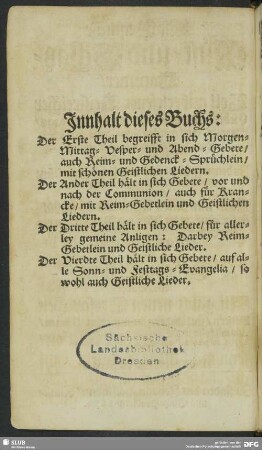 Innhalt dieses Buchs:
Der Erste Theil begreifft in sich Morgen-
Mittag- Vesper- und Abend- Gebete/
auch Reim- und Gedenck- Sprüchlein/
mit schönen Geistlichen Liedern.
Der Ander Theil hält in sich Gebete/ vor und
nach der Communion/ auch für Kran-
cke/ mit Reim-Gebetlein und Geistlichen
Liedern.
Der Dritte Theil hält in sich Gebet/ für aller-
ley gemeine Anligen: Darbey Reim-
Gebetlein und Geistliche Lieder.
Der Vierdte Theil hält in sich Gebete/ auf al-
le Sonn- und Festtags- Evangelia/ so
wohl auch Geistliche Lieder.
Sächsische
Landesbibliothek
Dresden
SLUB
DFG